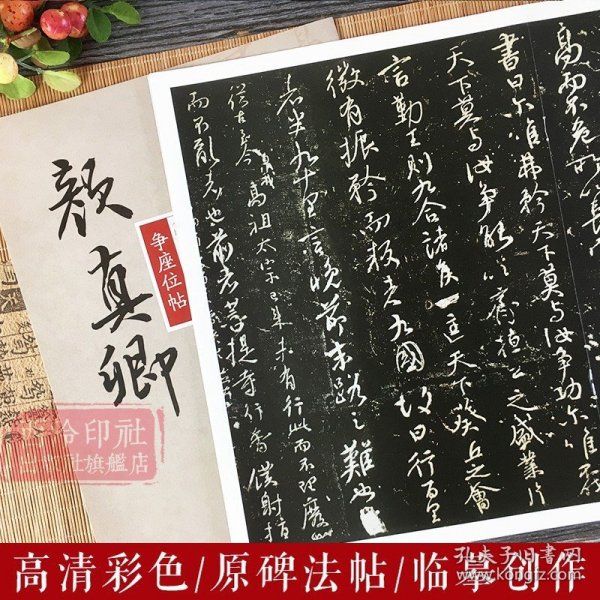 顏真卿
争座位帖
高而不危所以長
書曰尔唯弗矜天下莫与汝争功尔唯不伐
天下莫与汝争能以齊桓公之盛業片
言勤王則九合諸侯一匡天下葵丘之會
微有振矜而叛者九國故曰行百里
者半九十里言晚節末路之難也
從古至今暨我高祖太宗已来未有行此而不理廢
而不亂者也前者菩提寺行香僕射指
西泠印社
出版社旗艦店
孔夫子旧书网
www.kongfz.com
高清彩色/原碑法帖/临摹创作